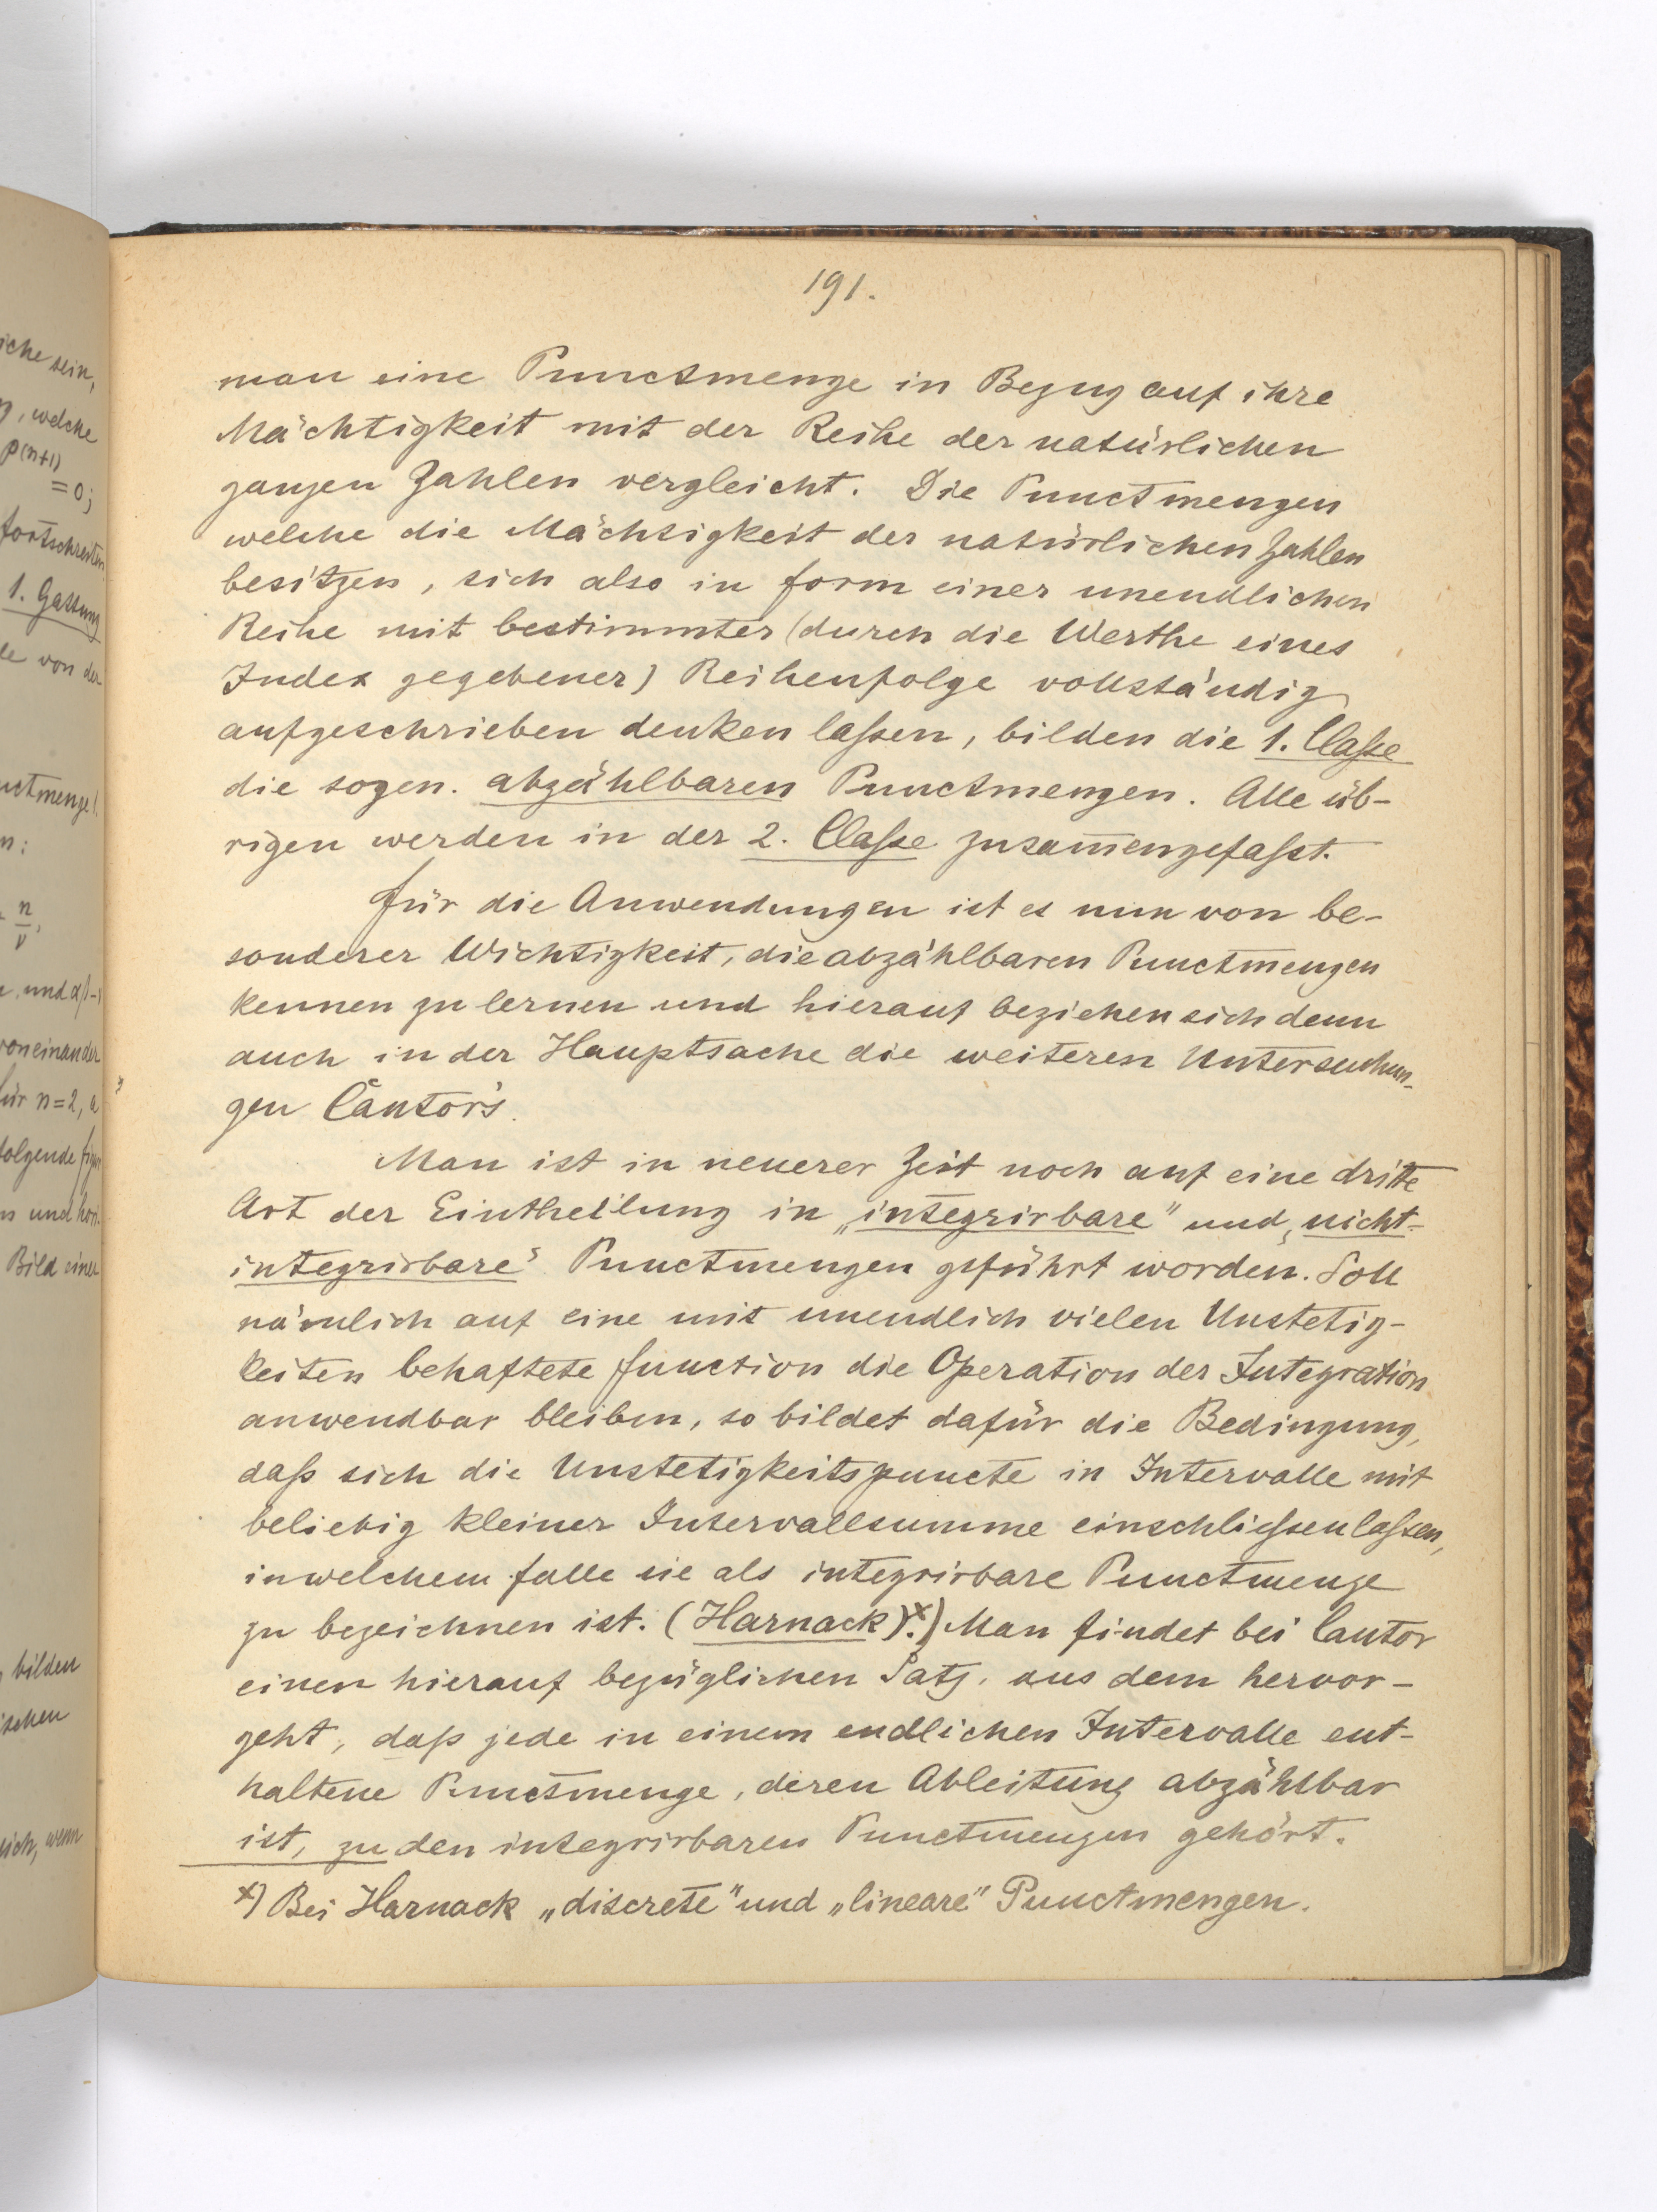 iche sein,
, welche
p(n+1)
= 0;
fortschreiten
1. Gattung
le von der
uctmenge!
n:
n/ν,
, und αβ-
voneinander
für n=2, a
folgende figur
und hori-
Bild einer
, bilden
ischen
eich, wenn
191.
man eine Punctmenge in Bezug auf ihre
Mächtigkeit mit der Reihe der natürlichen
ganzen Zahlen vergleicht. Die Punctmengen
welche die Mächtigkeit der natürlichen Zahlen
besitzen, sich also in form einer unendlichen
Reihe mit bestimmter (durch die Werthe eines
Index gegebener) Reihenfolge vollständig
aufgeschrieben denken laſsen, bilden die 1. Claſse
die sogen. abzählbaren Punctmengen. Alle üb-
rigen werden in der 2. Claſse zusam̅engefaſst.
für die Anwendungen ist es nun von be-
sonderer Wichtigkeit, die abzählbaren Punctmengen
kennen zu lernen und hierauf beziehen sich denn
auch in der Hauptsache die weiteren Untersuchun-
gen Cantor's.
Man ist in neuerer Zeit noch auf eine dritte
Art der Eintheilung in „integrirbare" und „nicht-
integrirbare" Punctmengen geführt worden. Soll
nämlich auf eine mit unendlich vielen Unstetig-
keiten behaftete function die Operation der Integration
anwendbar bleiben, so bildet dafür die Bedingung,
daß sich die Unstetigkeitspuncte in Intervalle mit
beliebig kleiner Intervallsumme einschlieſsen laſsen,
in welchem falle sie als integrirbare Punctmenge
zu bezeichnen ist. (Harnack)ˣ.) Man findet bei Cantor
einen hierauf bezüglichen Satz, aus dem hervor-
geht, daß jede in einem endlichen Intervalle ent-
haltene Punctmenge, deren Ableitung abzählbar
ist, zu den integrirbaren Punctmengen gehört.
x) Bei Harnack „discrete" und „lineare" Punctmengen.